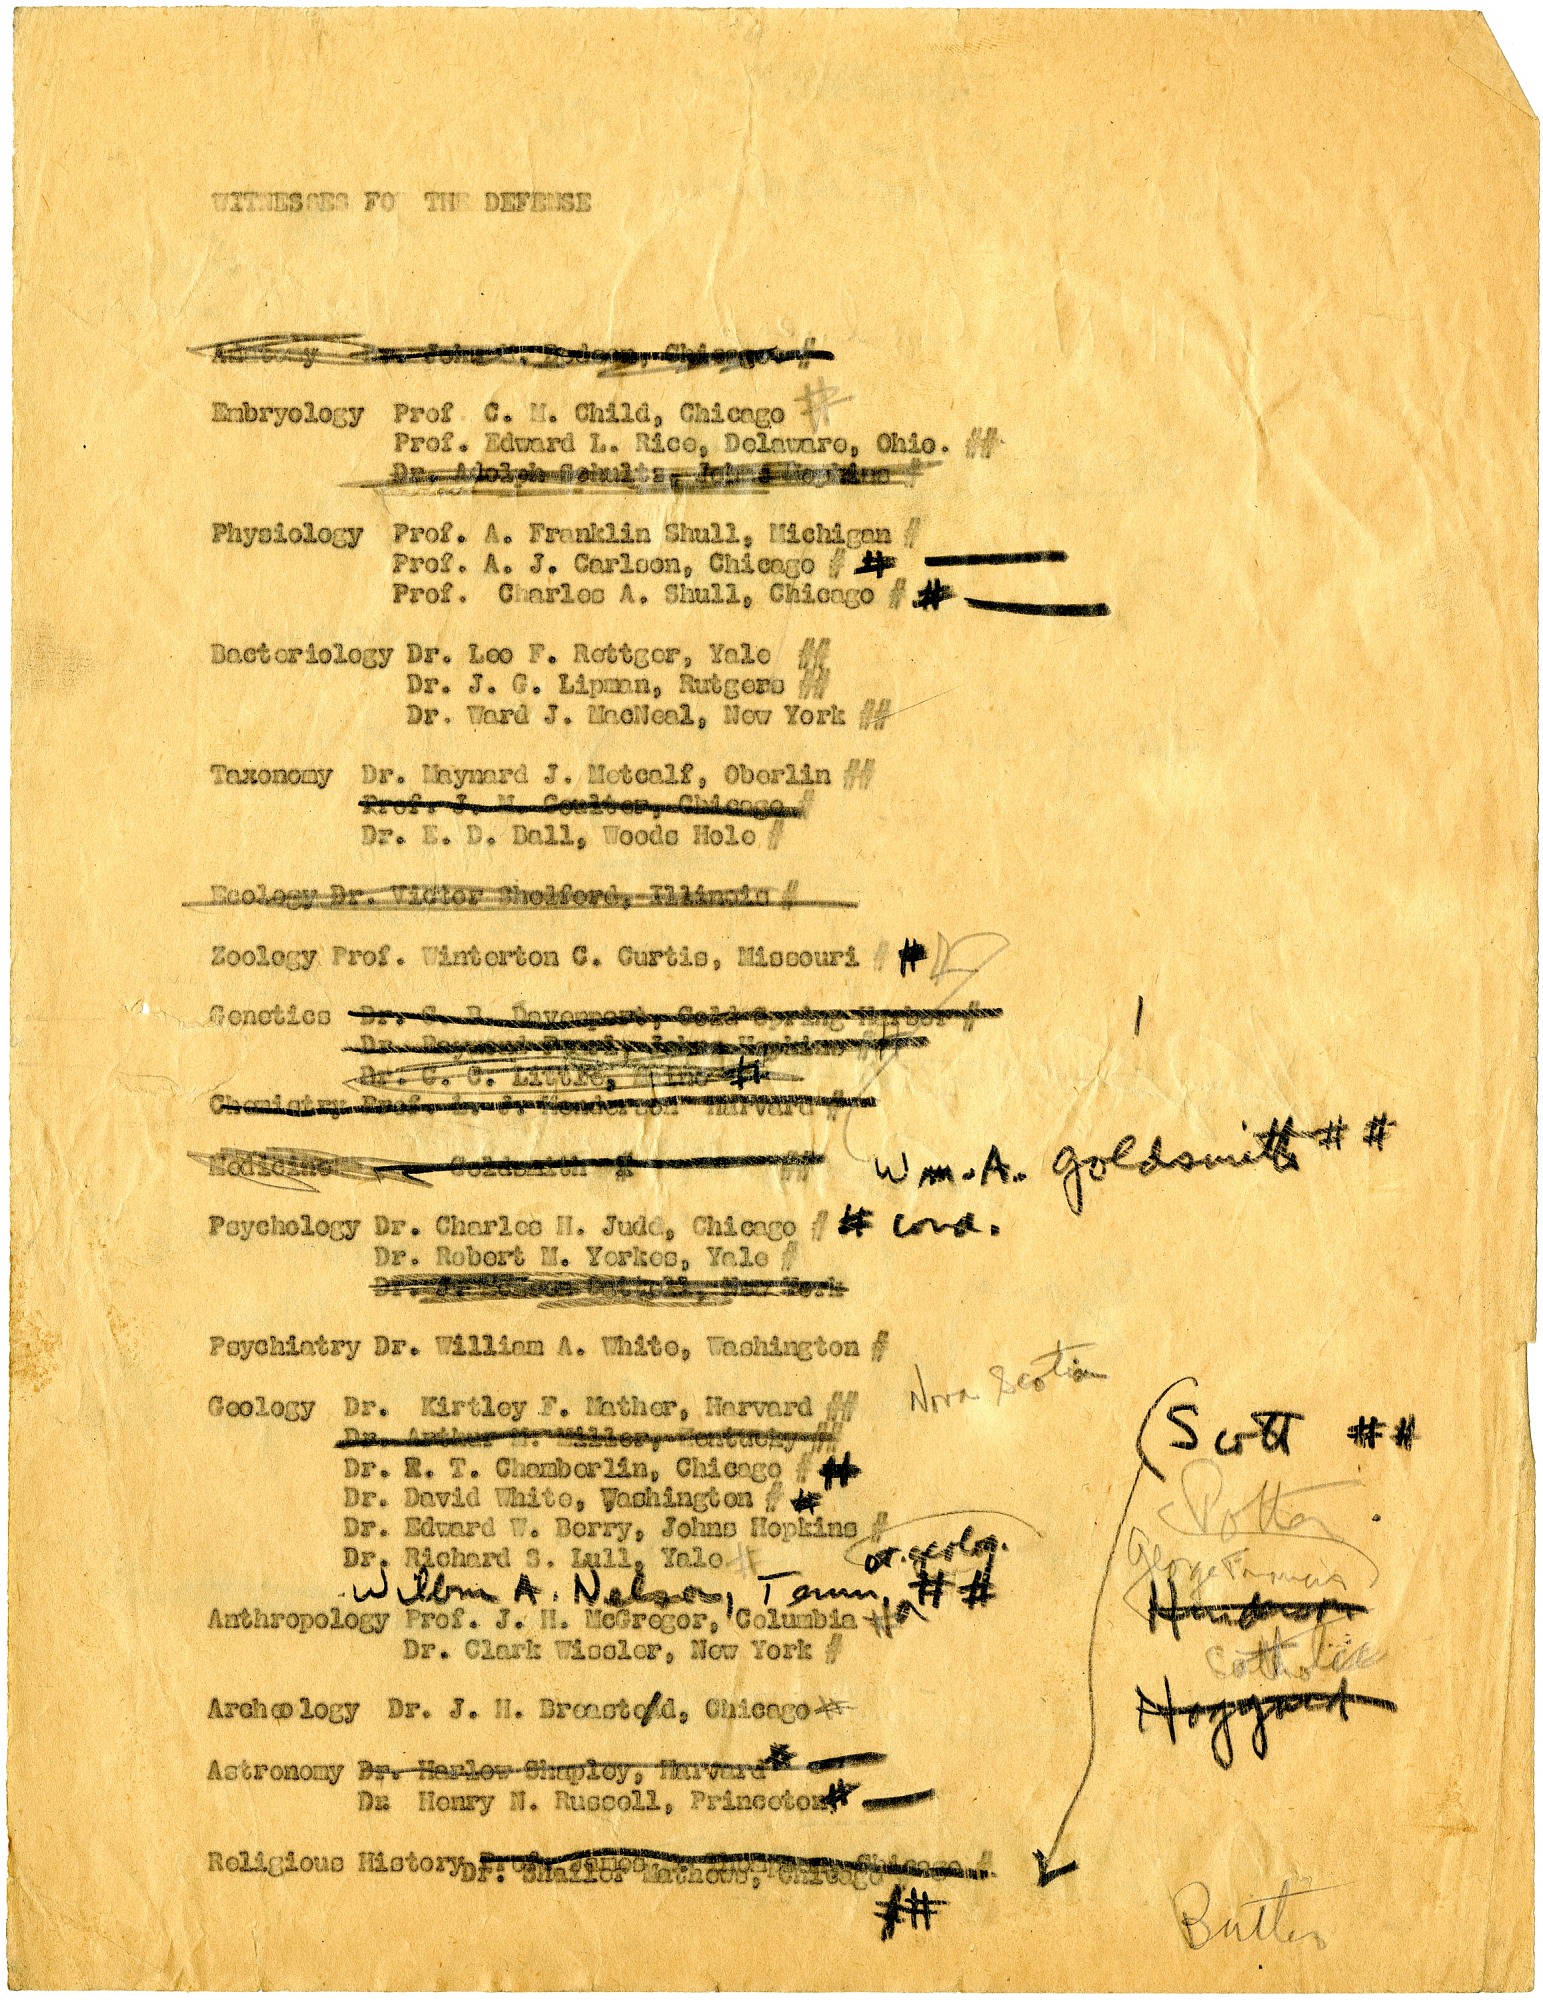 WITNESSES FO THE DEFENSE
Embryology Prof C. M. Child, Chicago #
Prof. Edward L. Rice, Delaware, Ohio. ##
Dr. Adolph Schultz, Johns Hopkins #
Physiology Prof. A. Franklin Shull, Michigan #
Prof. A. J. Carlson, Chicago # #
Prof. Charles A. Shull, Chicago # #
Bacteriology Dr. Leo F. Rettger, Yale ##
Dr. J. G. Lipman, Rutgers ##
Dr. Ward J. MacNeal, New York ##
Taxonomy Dr. Maynard J. Metcalf, Oberlin ##
Prof. J. M. Coulter, Chicago #
Dr. E. D. Ball, Woods Hole #
Ecology Dr. Victor Shelford, Illinois #
Zoology Prof. Winterton C. Curtis, Missouri # #
Genetics Dr. C. B. Davenport, Cold Spring Harbor #
Dr. C. C. Little, #
Chemistry Prof. L. J. Henderson Harvard #
Medicine Goldsmith # ## Wm. A. Goldsmith # #
Psychology Dr. Charles H. Judd, Chicago # # cond.
Dr. Robert M. Yerkes, Yale #
Dr. J. New York
Psychiatry Dr. William A. White, Washington #
Nova Scotian
Geology Dr. Kirtley F. Mather, Harvard ##
Dr. Arthur M. Miller, Kentucky ## Scott ##
Dr. R. T. Chamberlin, Chicago # #
Dr. David White, Washington # #
Potter
Dr. Edward W. Berry, Johns Hopkins #
st. geolog.
Dr. Richard S. Lull, Yale #
George Francis
Wilbur A. Nelson, Tenn. # #
Anthropology Prof. J. H. McGregor, Columbia #
Dr. Clark Wissler, New York #
Catholic
Archeology Dr. J. H. Breasted, Chicago #
Haggard
Astronomy Dr. Harlow Shapley, Harvard #
Dr Henry N. Russell, Princeton #
Religious History Prof. James Thompson, Chicago #
Dr. Shailer Mathews, Chicago
##
Butler